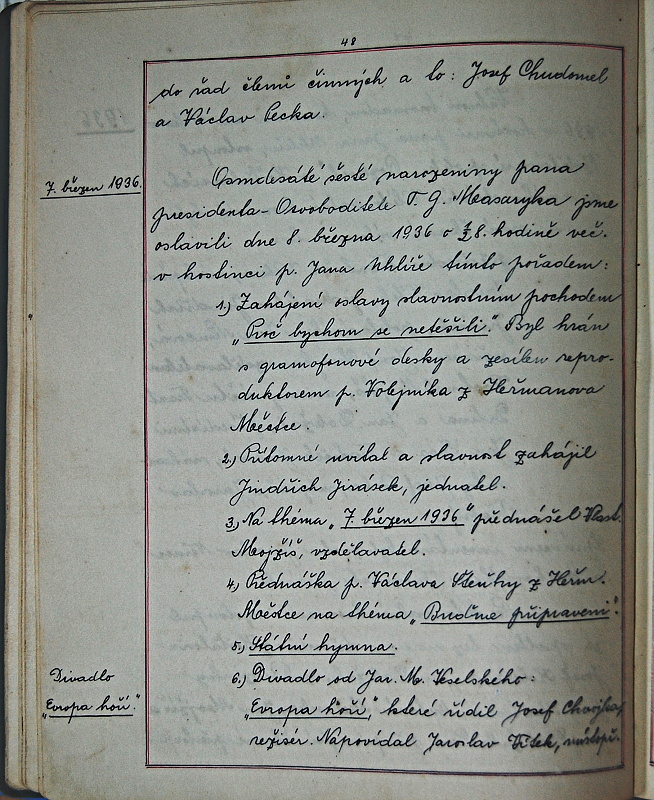 48
do řad členů činných a to: Josef Chudomel
a Václav Pecka.
7. březen 1936.
Osmdesáté šesté narozeniny pana
presidenta-Osvoboditele T. G. Masaryka jsme
oslavili dne 8. března 1936 o ½8. hodině več.
v hostinci p. Jana Uhlíře tímto pořadem:
1.) Zahájení oslavy slavnostním pochodem
„Proč bychom se netěšili." Byl hrán
s gramofonové desky a zesílen repro-
duktorem p. Volejníka z Heřmanova
Městce.
2.) Přítomné uvítal a slavnost zahájil
Jindřich Jirásek, jednatel.
3.) Na théma „7. březen 1936" přednášel Vlast.
Mojžíš, vzdělavatel.
4.) Přednáška p. Václava Šteflhy z Heřm.
Městce na théma „Buďme připraveni".
5.) Státní hymna.
6.) Divadlo od Jar. M. Veselského:
Divadlo
„Evropa hoří."
„Evropa hoří," které řídil Josef Chvojka,
režisér. Napovídal Jaroslav Vítek, nástupč.